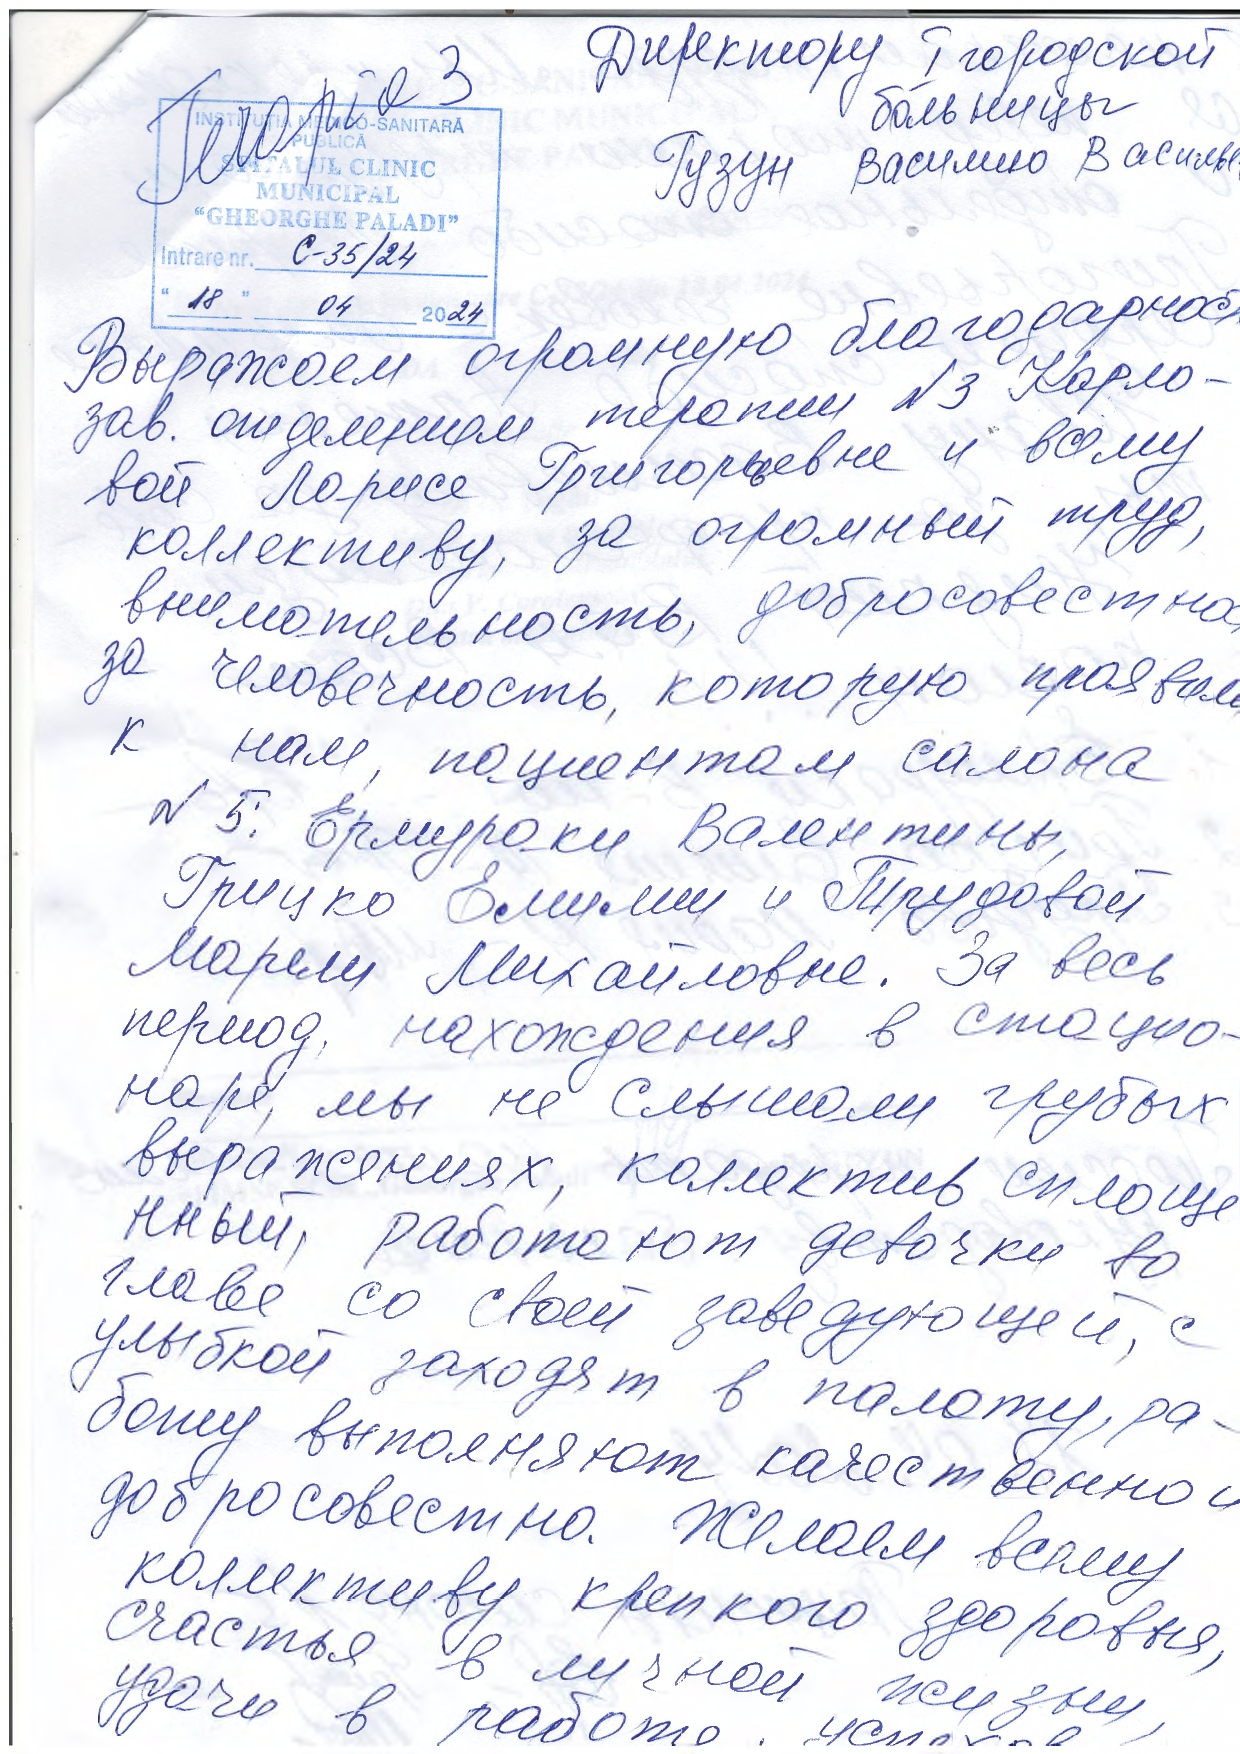 Terapia 3
Директору I городской
больницы
Гузун Василию Василье
INSTITUȚIA MEDICO-SANITARĂ
PUBLICĂ
SPITALUL CLINIC
MUNICIPAL
“GHEORGHE PALADI”
Intrare nr. C-35/24
“ 18 ” 04 2024
Выражаем огромную благодарность
зав. отделением терапии №3 Карло-
вой Ларисе Григорьевне и всему
коллективу, за огромный труд,
внимательность, добросовестнос
за человечность, которую проявили
к нам, пациентам салона
№ 5. Ермураки Валентины,
Грицко Емилии и Трудовой
Марии Михайловне. За весь
период, нахождения в стацио-
наре, мы не слышали грубых
выражениях, коллектив сплоще
нный, работают девочки во
главе со своей заведующей, с
улыбкой заходят в палату, ра-
боту выполняют качественно и
добросовестно. Желаем всему
коллективу крепкого здоровья,
счастья в личной жизни,
удачи в работе, успехов